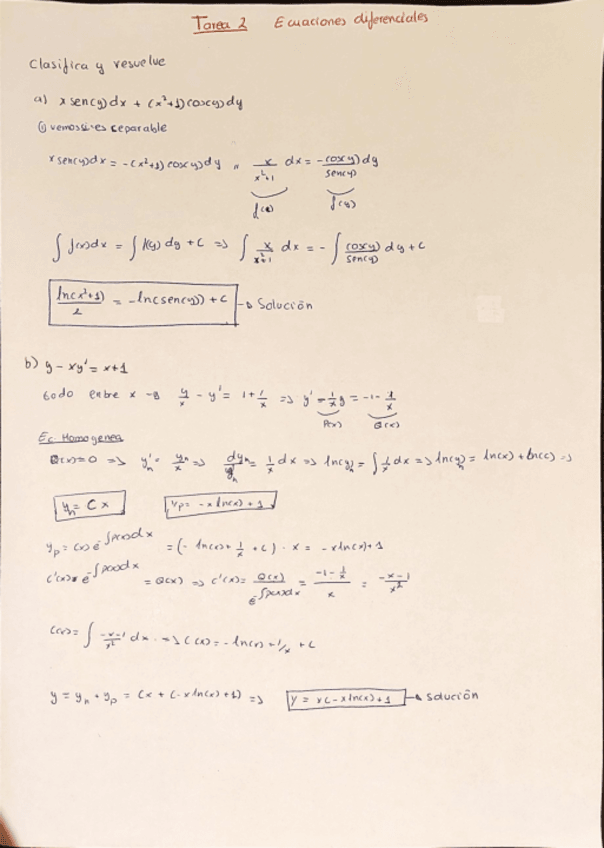 Tarea 2 Ecuaciones diferenciales
Clasifica y resuelve
a) x sen(y) dx + (x²+1) cos(y) dy
① vemos si es separable
x sen(y) dx = -(x²+1) cos(y) dy " x/(x²+1) dx = -cos(y)/sen(y) dy
f(x) f(y)
∫ f(x) dx = ∫ f(y) dy + C => ∫ x/(x²+1) dx = -∫ cos(y)/sen(y) dy + C
ln(x²+1)/2 = -ln(sen(y)) + C → Solución
b) y - xy' = x+1
todo entre x → y/x - y' = 1 + 1/x => y' - 1/x y = -1 - 1/x
P(x) Q(x)
Ec. Homogenea
Q(x)=0 => y'ₕ = yₕ/x => dyₕ/yₕ = 1/x dx => ln(yₕ) = ∫ 1/x dx => ln(yₕ) = ln(x) + ln(c) =>
yₕ = Cx yp = -x ln(x) + 1
yp = C(x) e^-∫p(x)dx = (-ln(x) + 1/x + C) · x = -x ln(x) + 1
C'(x) e^-∫p(x)dx = Q(x) => C'(x) = Q(x)/e^-∫p(x)dx = (-1 - 1/x)/x = (-x-1)/x²
C(x) = ∫ (-x-1)/x² dx => C(x) = -ln(x) + 1/x + C
y = yₕ + yp = Cx + (-x ln(x) + 1) => y = xC - x ln(x) + 1 → Solución